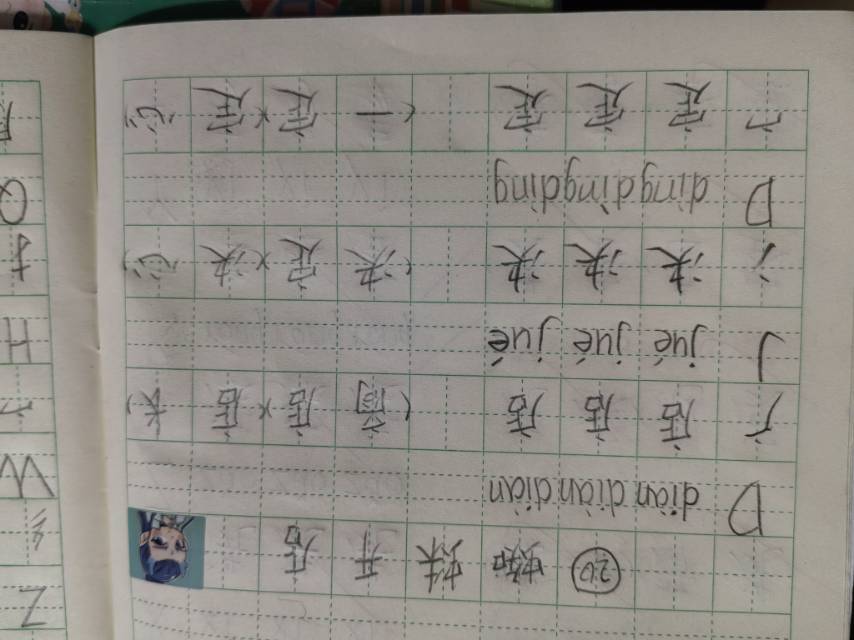 ⑳ 蜘蛛开店
D diàn diàn diàn
广 店 店 店 (商店)(店长)
J jué jué jué
冫 决 决 决 (决定)(决心)
D dìng dìng dìng
宀 定 定 定 (一定)(定心)
Z
纟
W
H
Q